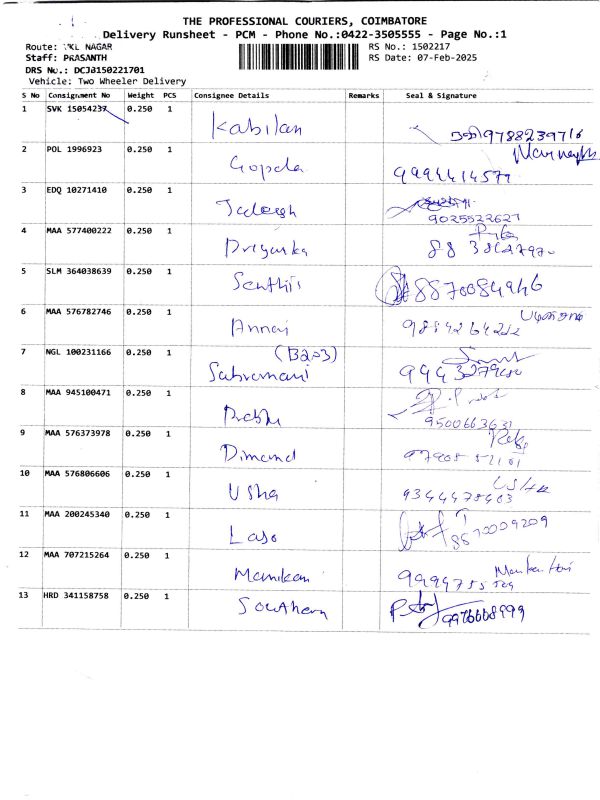 THE PROFESSIONAL COURIERS, COIMBATORE
Delivery Runsheet - PCM - Phone No.:0422-3505555 - Page No.:1
Route: NAGAR
RS No.: 1502217
Staff: PRASANTH
RS Date: 07-Feb-2025
DRS No.: DCJB150221701
Vehicle: Two Wheeler Delivery
S No Consignment No Weight PCS Consignee Details Remarks Seal & Signature
1 SVK 15054237 0.250 1 Kabilan 9788239716
2 POL 1996923 0.250 1 Gopala 9994414577
3 EDQ 10271410 0.250 1 9025522627
4 MAA 577400222 0.250 1 Priyanka
5 SLM 364038639 0.250 1 Senthil 8870084946
6 MAA 576782746 0.250 1 Annai
7 NGL 100231166 0.250 1 (B203)
Subramani
8 MAA 945100471 0.250 1 Prabhu 9500663631
9 MAA 576373978 0.250 1 Dimand
10 MAA 576806606 0.250 1 Usha 9344478403
11 MAA 200245340 0.250 1 8870009209
12 MAA 707215264 0.250 1 Manikan
13 HRD 341158758 0.250 1 Southern 9976668999